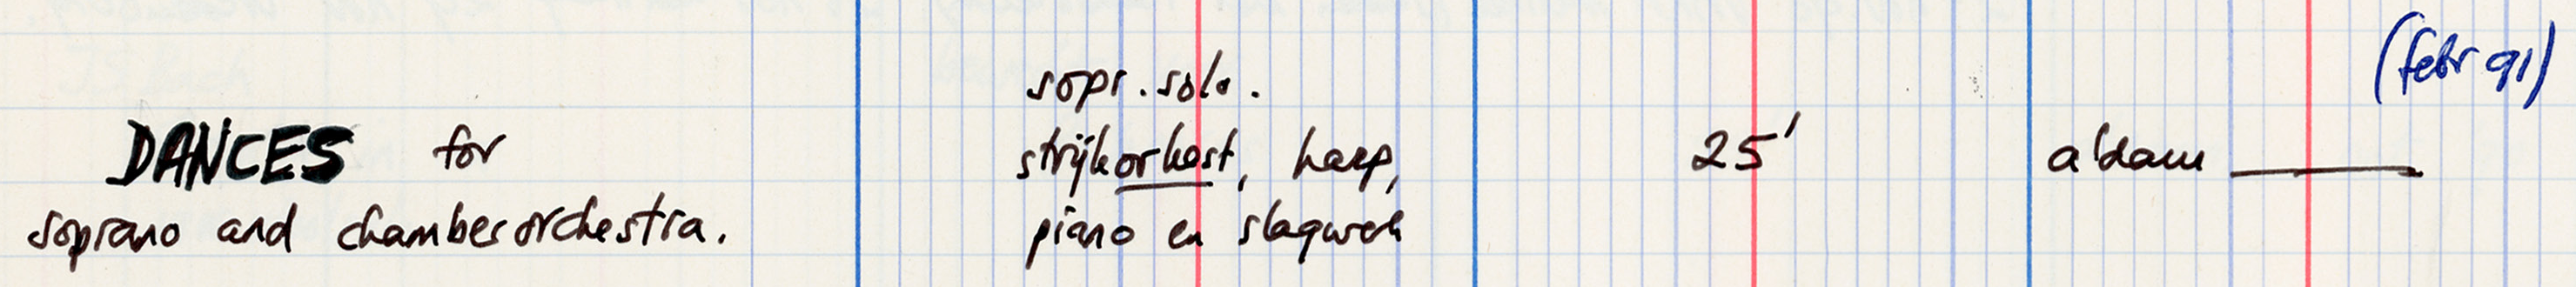 (febr 91)
sopr. solo.
DANCES for
strijkorkest, harp,
25'
a'dam
soprano and chamberorchestra.
piano en slagwerk